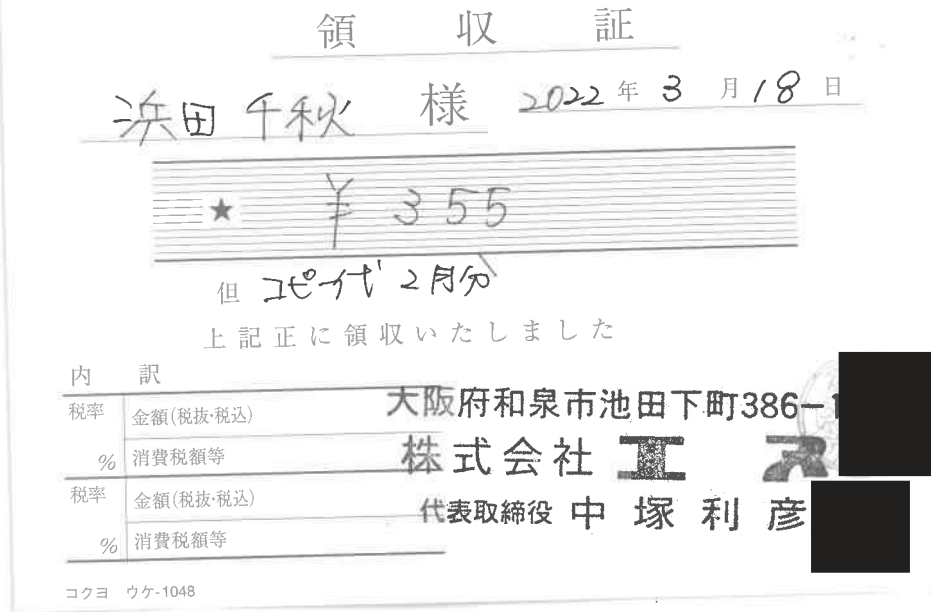 領収証
浜田 千秋 様 2022年3月18日
★ ¥355
但 コピー代 2月分
上記正に領収いたしました
内訳
税率 金額(税抜・税込)
% 消費税額等
税率 金額(税抜・税込)
% 消費税額等
大阪府和泉市池田下町386-1
株式会社 エス
代表取締役 中塚利彦
コクヨ ウケ-1048